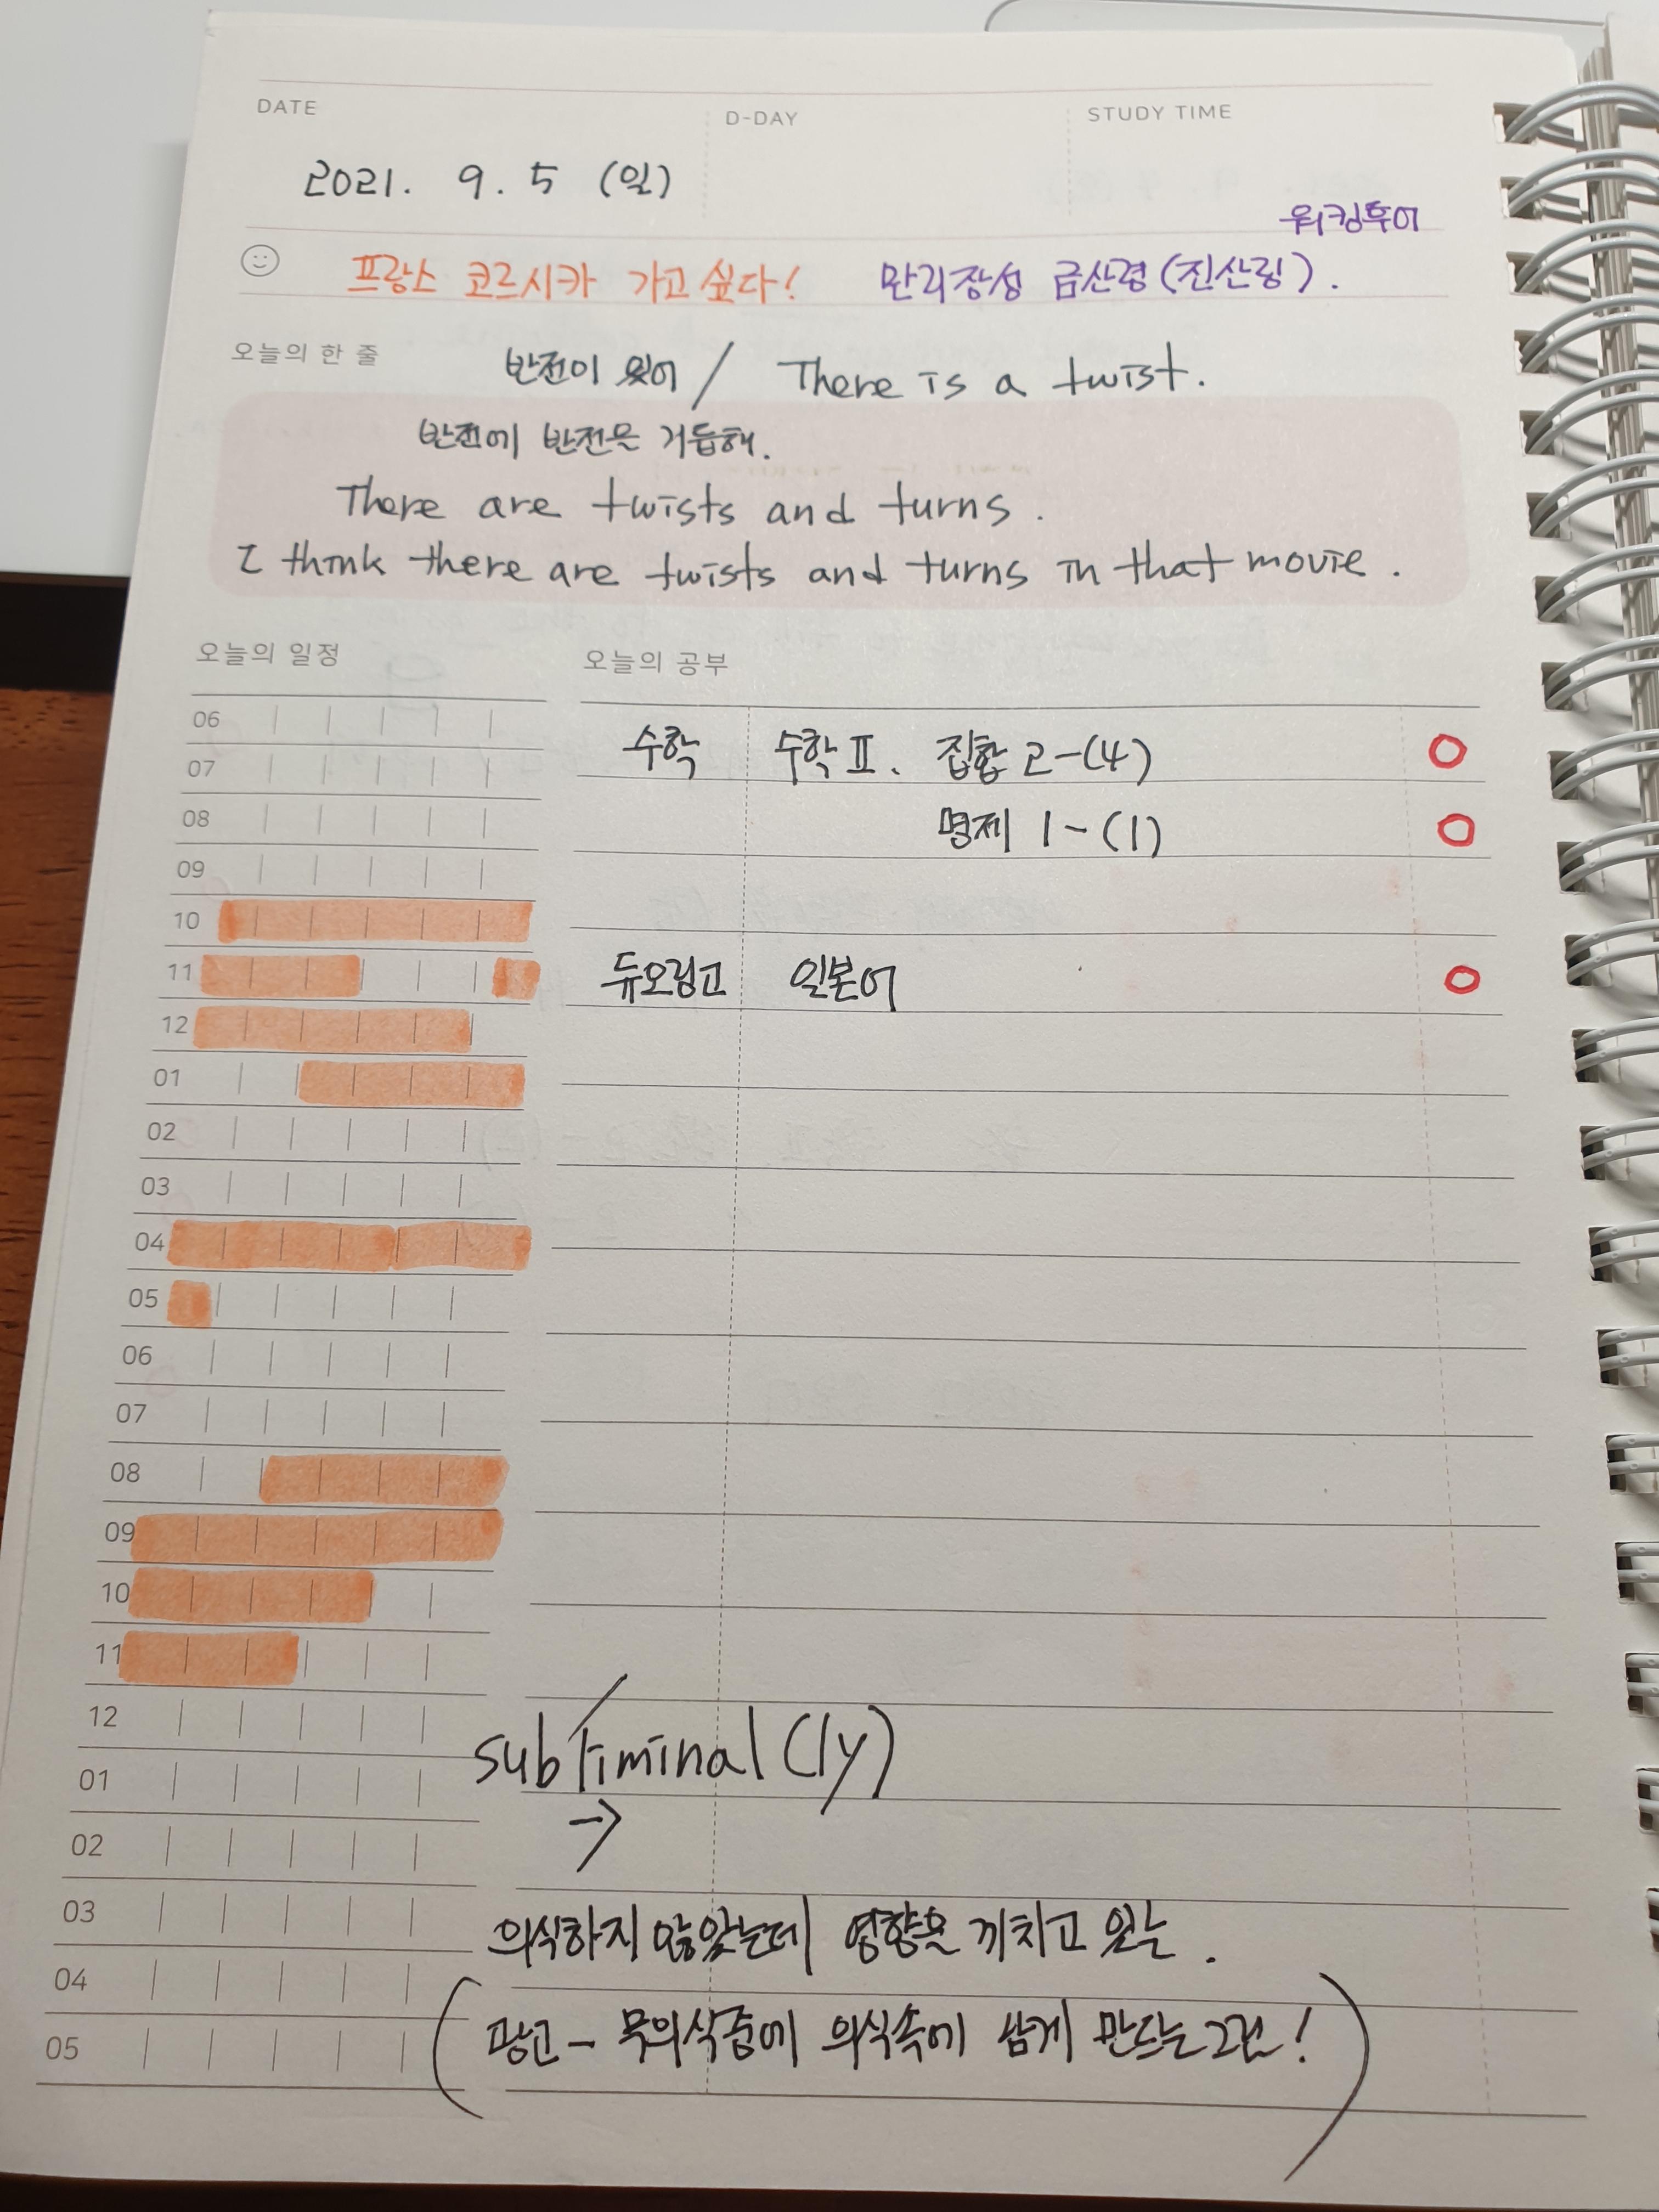 DATE D-DAY STUDY TIME
2021. 9. 5 (일)
워킹투어
프랑스 코르시카 가고싶다! 만리장성 금산령(진산링).
오늘의 한 줄
반전이 있어 / There is a twist.
반전에 반전을 거듭해.
There are twists and turns.
I think there are twists and turns in that movie.
오늘의 일정 오늘의 공부
06
수학 수학 II. 집합 2-(4) O
07
08
명제 1-(1) O
09
10
11
듀오링고 일본어 O
12
01
02
03
04
05
06
07
08
09
10
11
12
subliminal(ly)
01
→
02
03
의식하지 않았는데 영향을 끼치고 있는.
04
(광고 - 무의식중에 의식속에 남게 만드는 그런!)
05